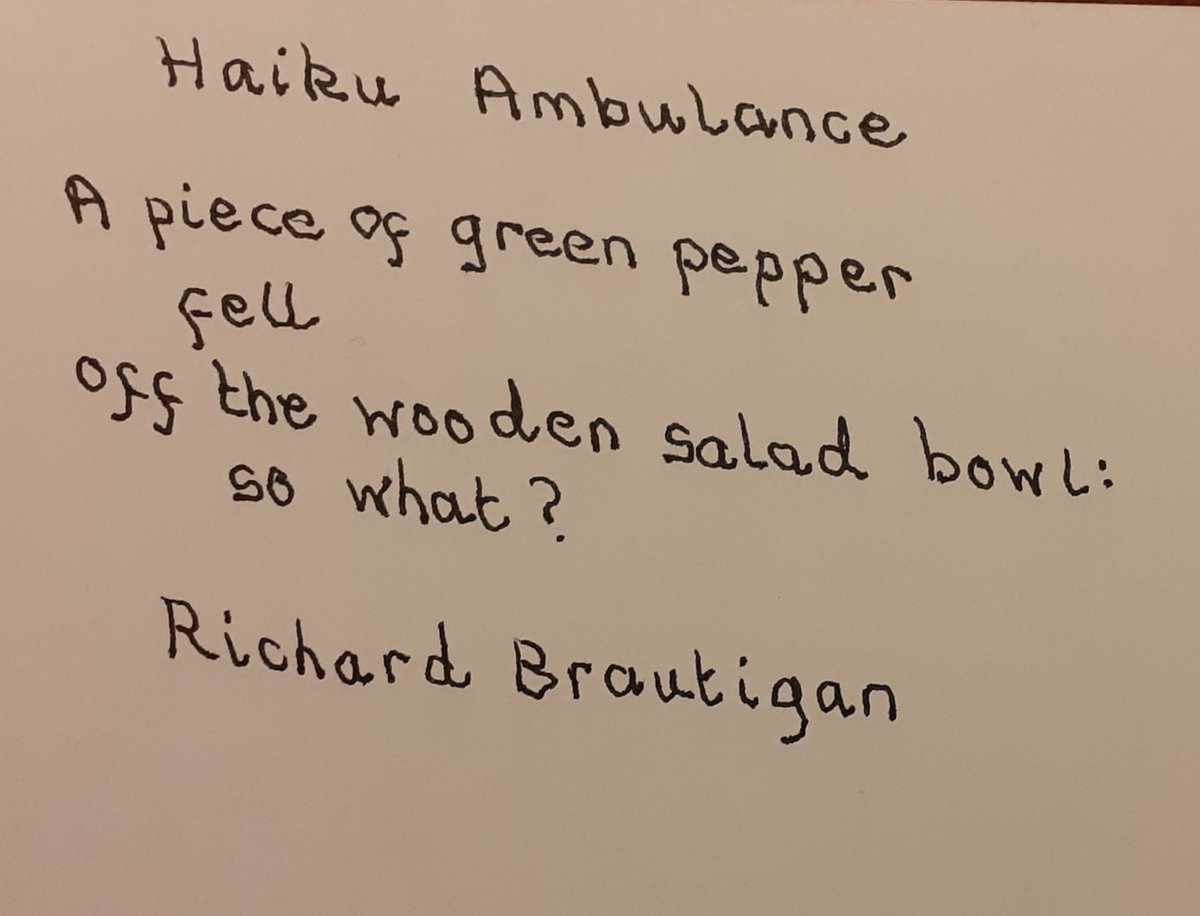 Haiku Ambulance
A piece of green pepper
fell
off the wooden salad bowl:
so what?
Richard Brautigan